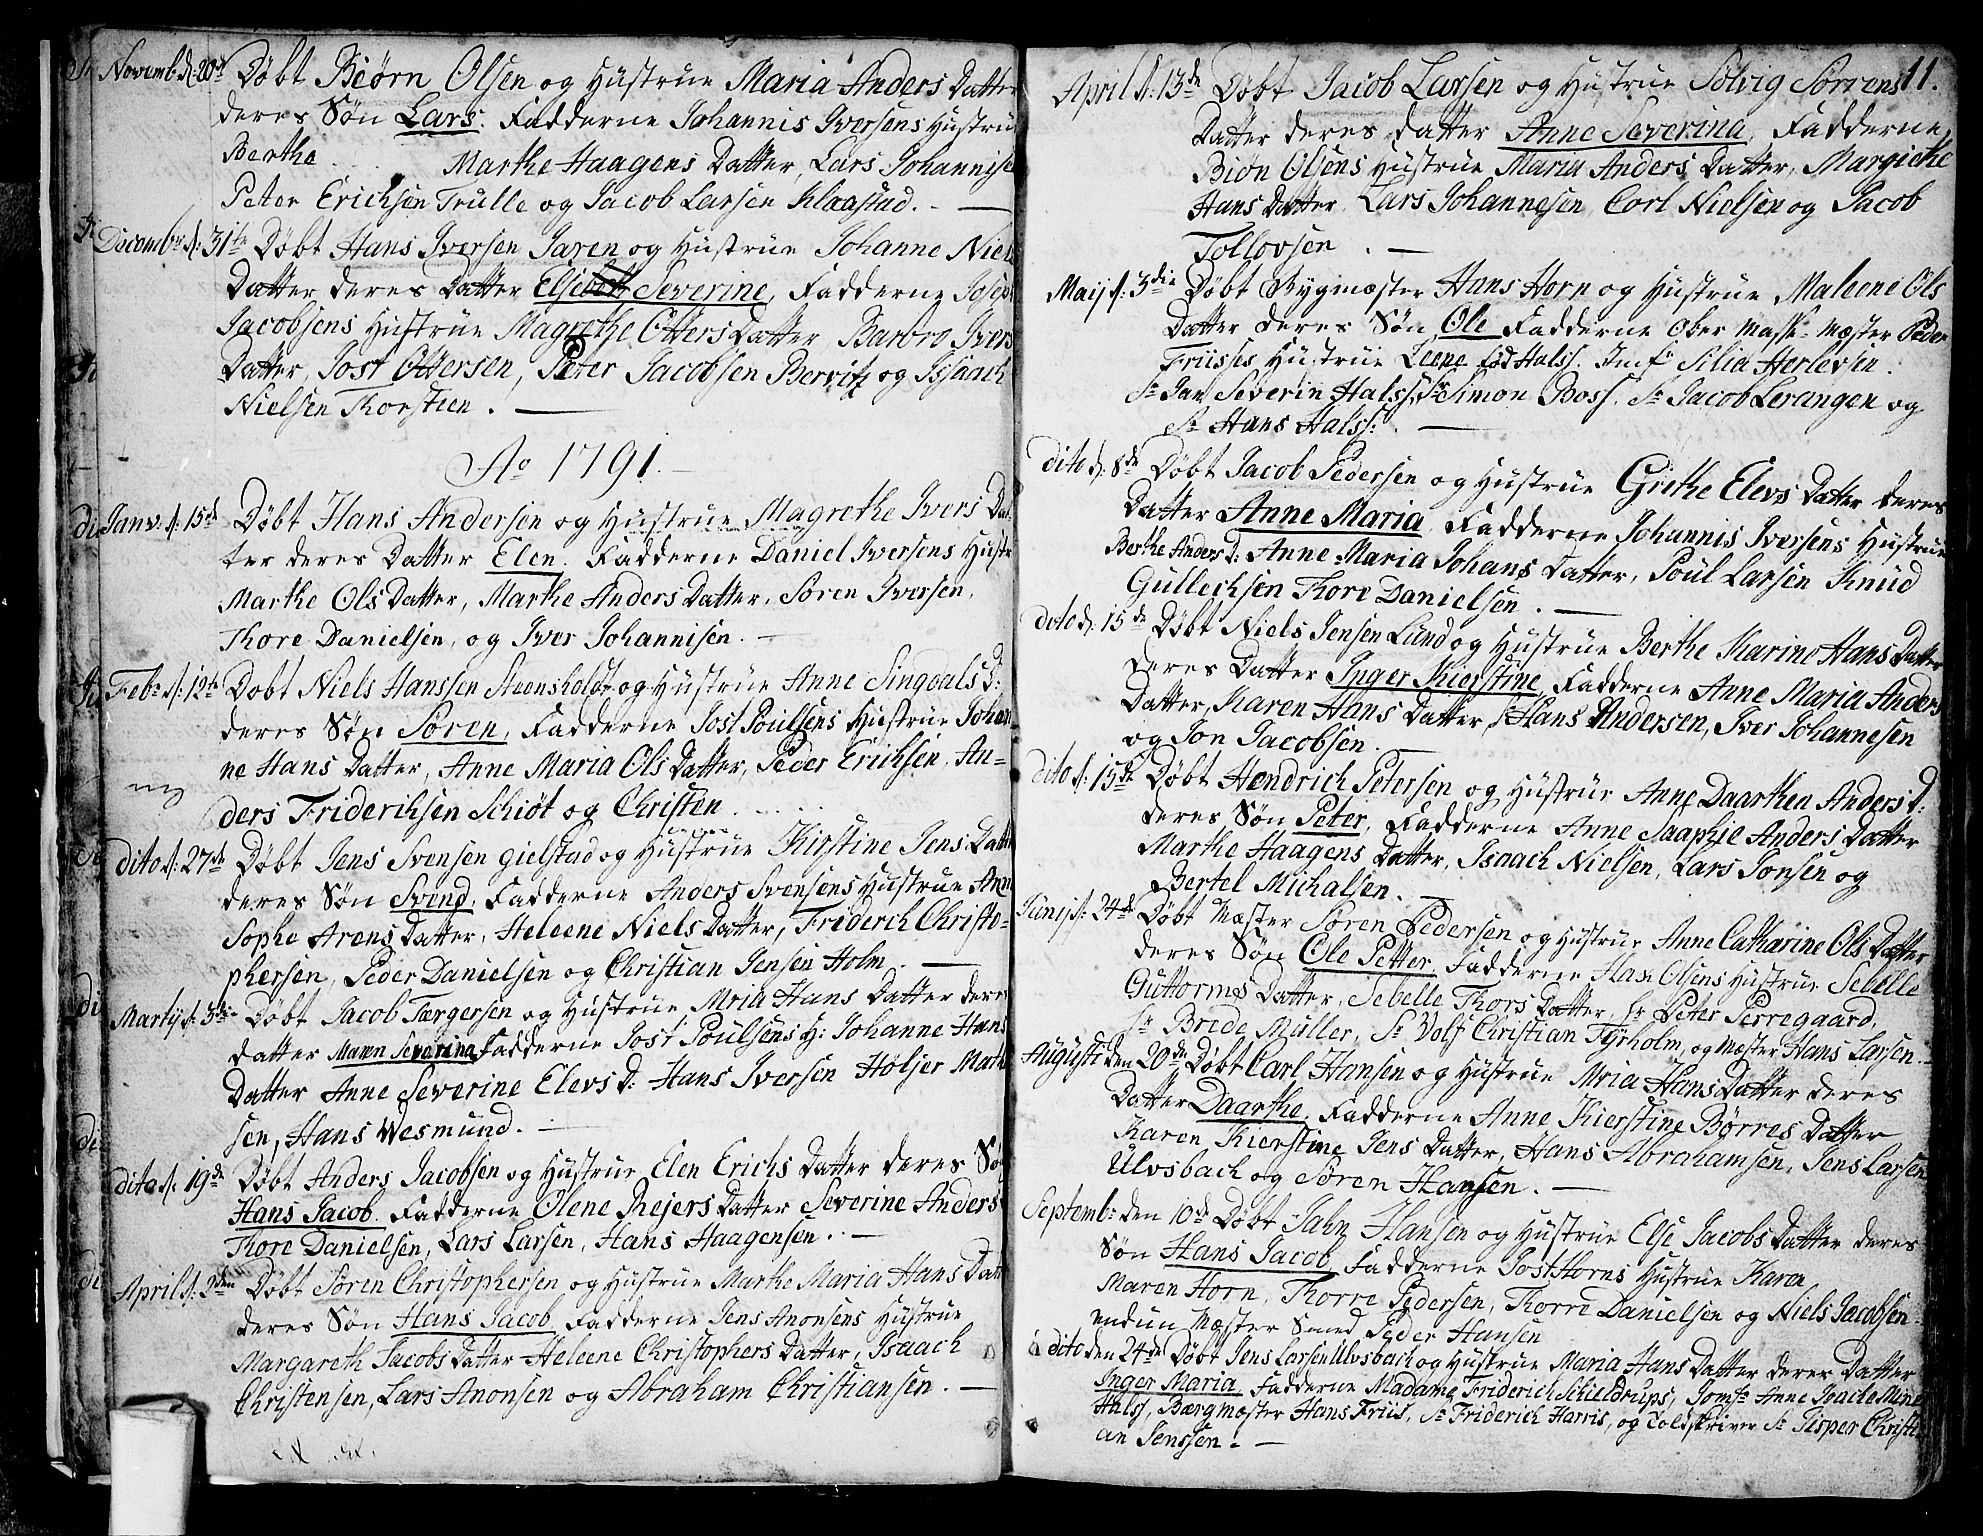 Novemb: d: 20de Døbt Biørn Olsen og Hustrue Maria Anders Datter
deres Søn Lars. Fadderne Johannis Iversens Hustru
Berthe Marthe Haagens Datter, Lars Johannise
Peter Erichsen Trulle og Jacob Larsen Klaastad.
Decembr: d: 31te Døbt Hans Iversen Jaren og Hustrue Johanne Niels
Datter deres Datter Else Severine, Fadderne Josep
Jacobsens Hustrue Magrethe Otters Datter, Barbro Ivers
Datter, Jost Ottersen, Peter Jacobsen Bervitz og Issach
Nielsen Thorstien.
Ao 1791.
Janv: d: 15de Døbt Hans Andersen og Hustrue Magrethe Ivers Dat-
ter deres Datter Elen. Fadderne Daniel Iversens Hustr
Marthe Ols Datter, Marthe Anders Datter, Søren Iversen,
Thore Danielsen, og Iver Johannisen.
Febr: d: 12te Døbt Niels Hanssen Steensholdt og Hustrue Anne Singdals D:
deres Søn Søren, Fadderne Jost Poulsens Hustrue Johan
ne Hans Datter, Anne Maria Ols Datter, Peder Erichsen, An-
ders Friderichsen Schiøt og Christen
dito d: 27de Døbt Jens Svensen Gielstad og Hustrue Kirstine Jens Datter
deres Søn Svend, Fadderne Anders Svensens Hustrue Anne
Sophe Arens Datter, Heleene Niels Datter, Friderich Christo-
phersen, Peder Danielsen og Christian Jensen Holm.
Martij d: 3die Døbt Jacob Tærgersen og Hustrue Mria Hans Datter deres
datter Maren Severina Fadderne Jost Poulsens H: Johanne Hans
Datter Anne Severine Elevs D: Hans Iversen Høljer Marti
sen, Hans Wesmund.
dito d: 19de Døbt Anders Jacobsen og Hustrue Elen Erichs Datter deres Sø
Hans Jacob. Fadderne Olene Rejers Datter Severine Anders
Thore Danielsen, Lars Larsen, Hans Haagensen.
April d: 2den Døbt Søren Christophersen og Hustrue Marthe Maria Hans Datt
deres Søn Hans Jacob, Fadderne Jens Anonsens Hustrue
Margareth Jacobs Datter Heleene Christophers Datter, Isaach
Christensen, Lars Anonsen og Abraham Christiansen.
11.
April d: 13de Døbt Jacob Larsen og Hustrue Sølvig Sørrens
Datter deres datter Anne Severina, Fadderne
Biøn Olsens Hustrue Maria Anders Datter, Margiethe
Hans Datter, Lars Johannesen, Carl Nielsen og Jacob
Tollovsen.
Maij d: 3die Døbt Bygmæster Hans Horn og Hustrue Maleene Ols
Datter deres Søn Ole Fadderne Ober Mask-Mæster Peder
Friises Hustrue Leene fød Halss. Jmfr Silia Herlevsen.
Sr Jan Severin Halss, Sr Simon Boss. Sr Jacob Lerangen og
Sr Hans Halss:
dito d: 8de Døbt Jacob Pedersen og Hustrue Grethe Elevs Datter deres
Datter Anne Maria, Fadderne Johannis Iversens Hustrue
Berthe Anders D: Anne Maria Johans Datter, Poul Larsen Knud
Gullechsen Thore Danielsen.
dito d: 15de Døbt Niels Jensen Lund og Hustrue Berthe Karine Hans Datter
deres Datter Inger Kierstine, Fadderne Anne Maria Anders
Datter, Karen Hans Datter, Sr Hans Andersen, Iver Johannesen
og Jon Jacobsen.
dito d: 15de Døbt Hendrich Petersen og Hustrue Anne Daarthea Anders D:
deres Søn Peter, Fadderne Anne Saaphie Anders Datter
Marthe Haagens Datter, Isaach Nielsen, Lars Jonsen og
Bertel Michalsen.
Junij d: 24de Døbt Mæster Søren Pedersen og Hustrue Anne Catharine Ols Datter
deres Søn Ole Petter, Fadderne Hans Olsens Hustrue Sebelle
Guttorms Datter, Sebelle Thors Datter, Sr Peter Perregaard,
Sr Brede Müller, Sr Volf Christian Tyrholm, og Mæster Hans Larsen.
Augusti den 20de Døbt Carl Hansen og Hustrue Mria Hans Datter deres
Datter Daarthe, Fadderne Anne Kierstine Børres Datter
Karen Kierstine Jens Datter, Hans Abrahamsen, Jens Larsen
Ulvsbach og Søren Hansen.
Septemb: den 10de Døbt Jahn Hansen og Hustrue Else Jacobs Datter deres
Søn Hans Jacob, Fadderne Jost Horns Hustrue Karen,
Maren Horn, Thorre Pedersen, Thorre Danielsen og Niels Jacobsen
endun Mæster Smed Peder Hansen
dito den 24de Døbt Jens Larsen Ulvsbach og Hustrue Maria Hans Datter deres Datter
Inger Maria, Fadderne Madame Friderich Schieldrups, Jomfr Anne Mine
Halss, Bærgmæster Hans Friis, Sr Friderich Harris, og Toldskriver Sr Jesper Christi
an Jenssen.